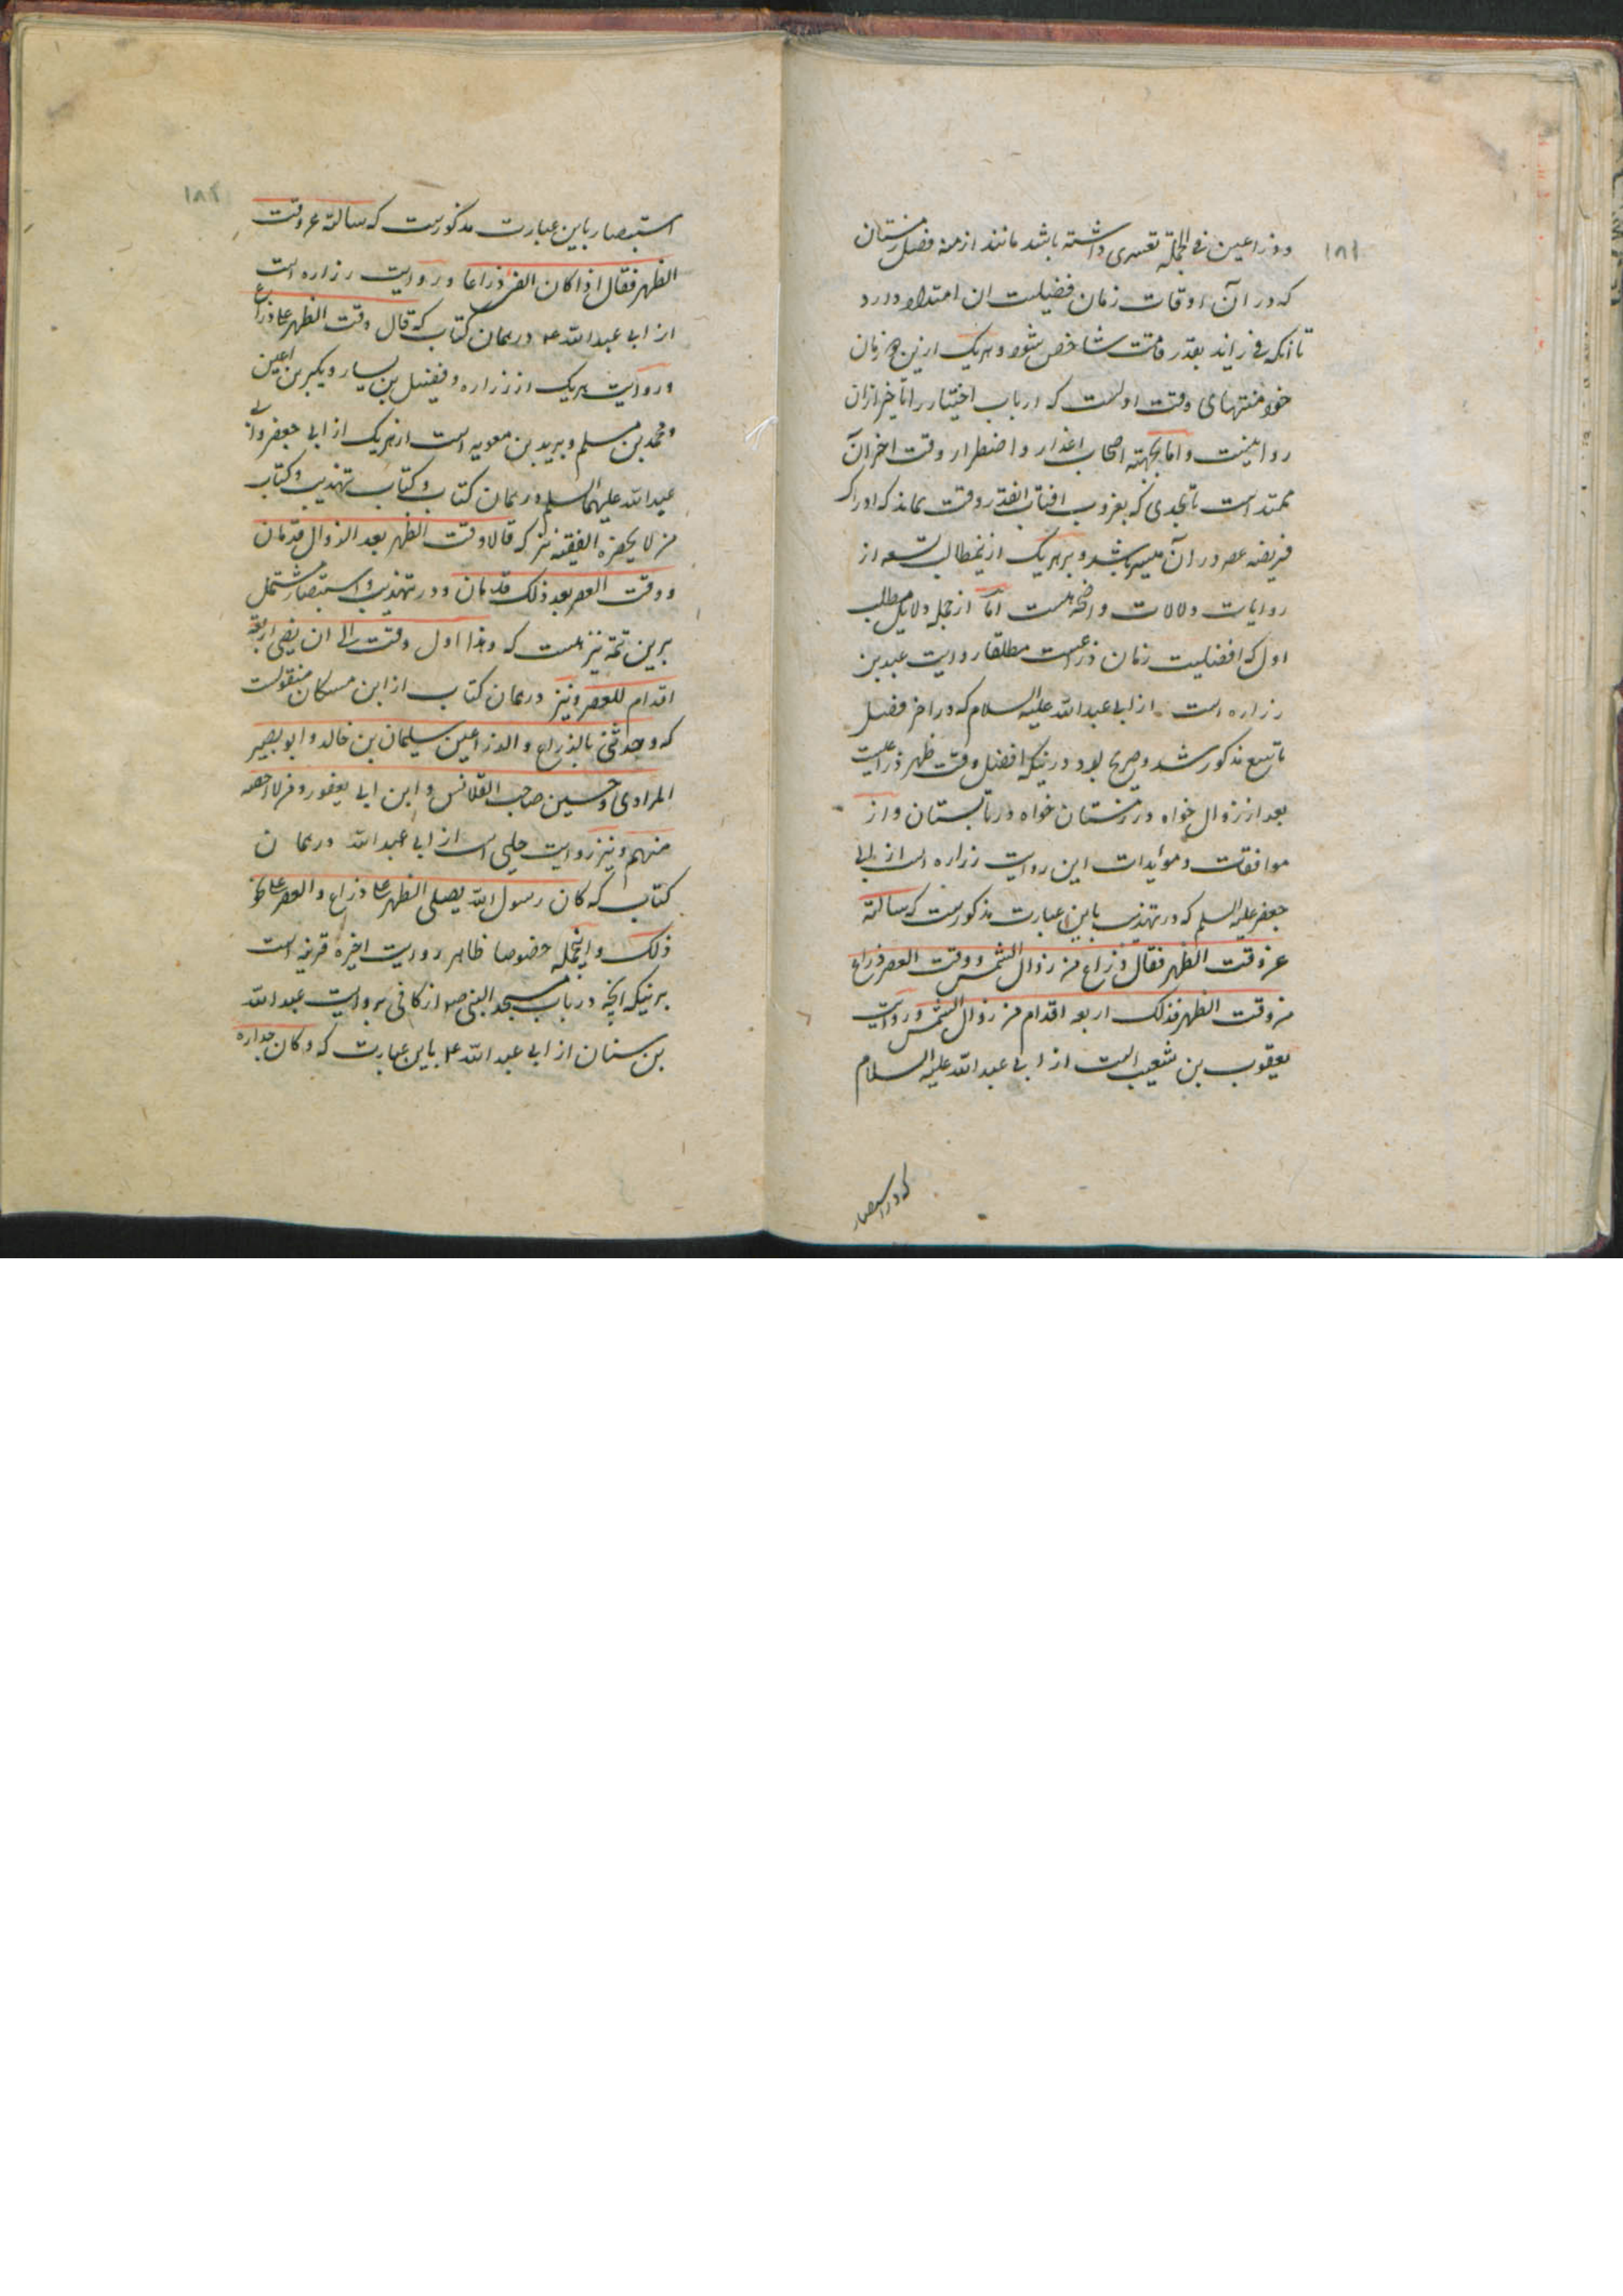 ۱۸۱
و ذراعین فی الجملة تعسری داشته باشد مانند ازمنه فصل زمستان
که در آن اوقات زمان فضیلت ان امتداد دارد
تا انکه فی زاید بقدر قامت شاخص شود و هریک ازین زمان
خود منتهای وقت اولست که ارباب اختیار را تاخیر ازان
روا نیست و اما بجهته اصحاب اعذار و اضطرار وقت اخر آن
ممتد است تا بحدی که بغروب افتاب انقدر وقت بماند که ادراک
فریضه عصر در آن میسر باشد و بر هریک ازین مطالب تسعه از
روایات و دلالات واضحه هست اما از جمله دلایل مطلب
اول که افضلیت زمان ذراعست مطلقا روایت عبید بن
زراره است از ابی عبد الله علیه السلام که در اخر فصل
تاسع مذکور شد و صریح بود در اینکه افضل وقت ظهر ذراعیست
بعد از زوال خواه در زمستان خواه در تابستان و از
موافقات و مؤیدات این روایت زراره است از ابی
جعفر علیه السلم که در تهذیب باین عبارت مذکورست که سالته
عن وقت الظهر فقال ذراع من زوال الشمس و وقت العصر ذراع
من وقت الظهر فذلک اربعة اقدام من زوال الشمس و روایت
یعقوب بن شعیب است از ابی عبد الله علیه السلام
که در استبصار
۱۸۲
استبصار باین عبارت مذکورست که سالته عن وقت
الظهر فقال اذا کان الفی ذراعا و روایت زراره است
از ابی عبد الله ع در همان کتاب که قال وقت الظهر علی ذراع
و روایت هریک از زراره و فضیل بن یسار و بکیر بن اعین
و محمد بن مسلم و برید بن معویه است از هریک از ابی جعفر و ابی
عبد الله علیهما السلم در همان کتاب و کتاب تهذیب و کتاب
من لا یحضره الفقیه نیز که قالا وقت الظهر بعد الزوال قدمان
و وقت العصر بعد ذلک قدمان و در تهذیب و استبصار مشتمل
برین تتمه نیز هست که و هذا اول وقت الی ان یمضی اربعة
اقدام للعصر و نیز در همان کتاب از ابن مسکان منقولست
که و حدثنی بالذراع و الذراعین سلیمان بن خالد و ابو بصیر
المرادی و حسین صاحب القلانس و ابن ابی یعفور و من لا احصیه
منهم و نیز روایت حلبی است از ابی عبد الله در همان
کتاب که کان رسول الله یصلی الظهر علی ذراع و العصر علی نحو
ذلک و اینجمله خصوصا ظاهر روایت اخیره قرینه است
بر اینکه انچه در باب مسجد النبی ص از کافی بروایت عبد الله
بن سنان از ابی عبد الله ع باین عبارت که و کان جداره